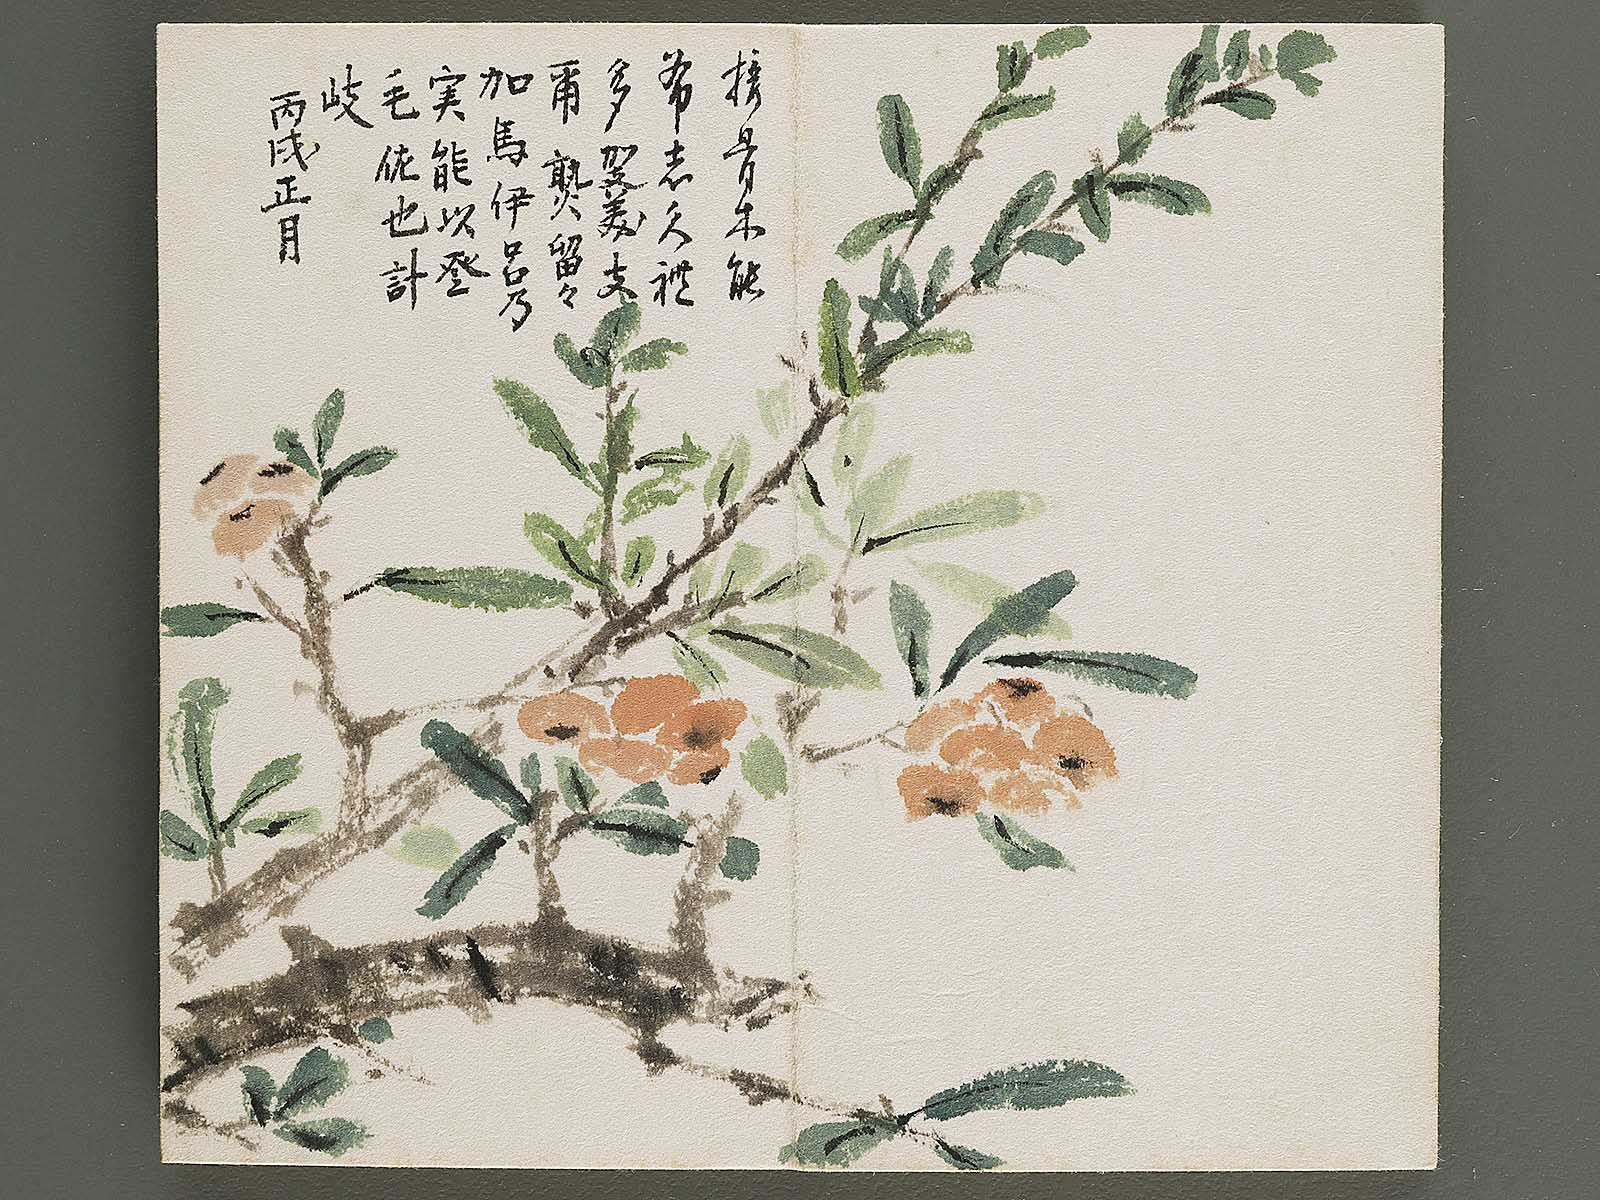 接骨木能
芽志久禮
多翠美支
爾熟留々
加馬伊呂乃
実能以登
毛佐也計
岐
丙戌正月